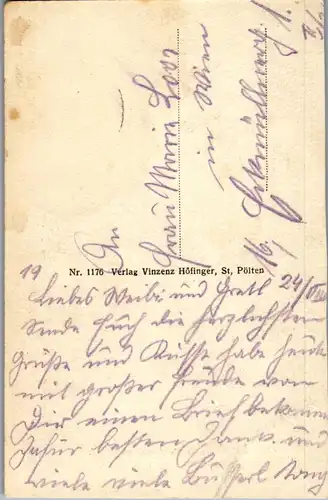 An
Frau Maria Loos
in Wien
Nr. 1176 Verlag Vinzenz Höfinger, St. Pölten
19 24/VIII
Liebes Weibi und Gretl
Sende Euch die herzlichsten
Grüße und Küsse habe heute
mit großer Freude von
Dir einen Brief bekommen
dafür besten Dank und
viele viele Busserl